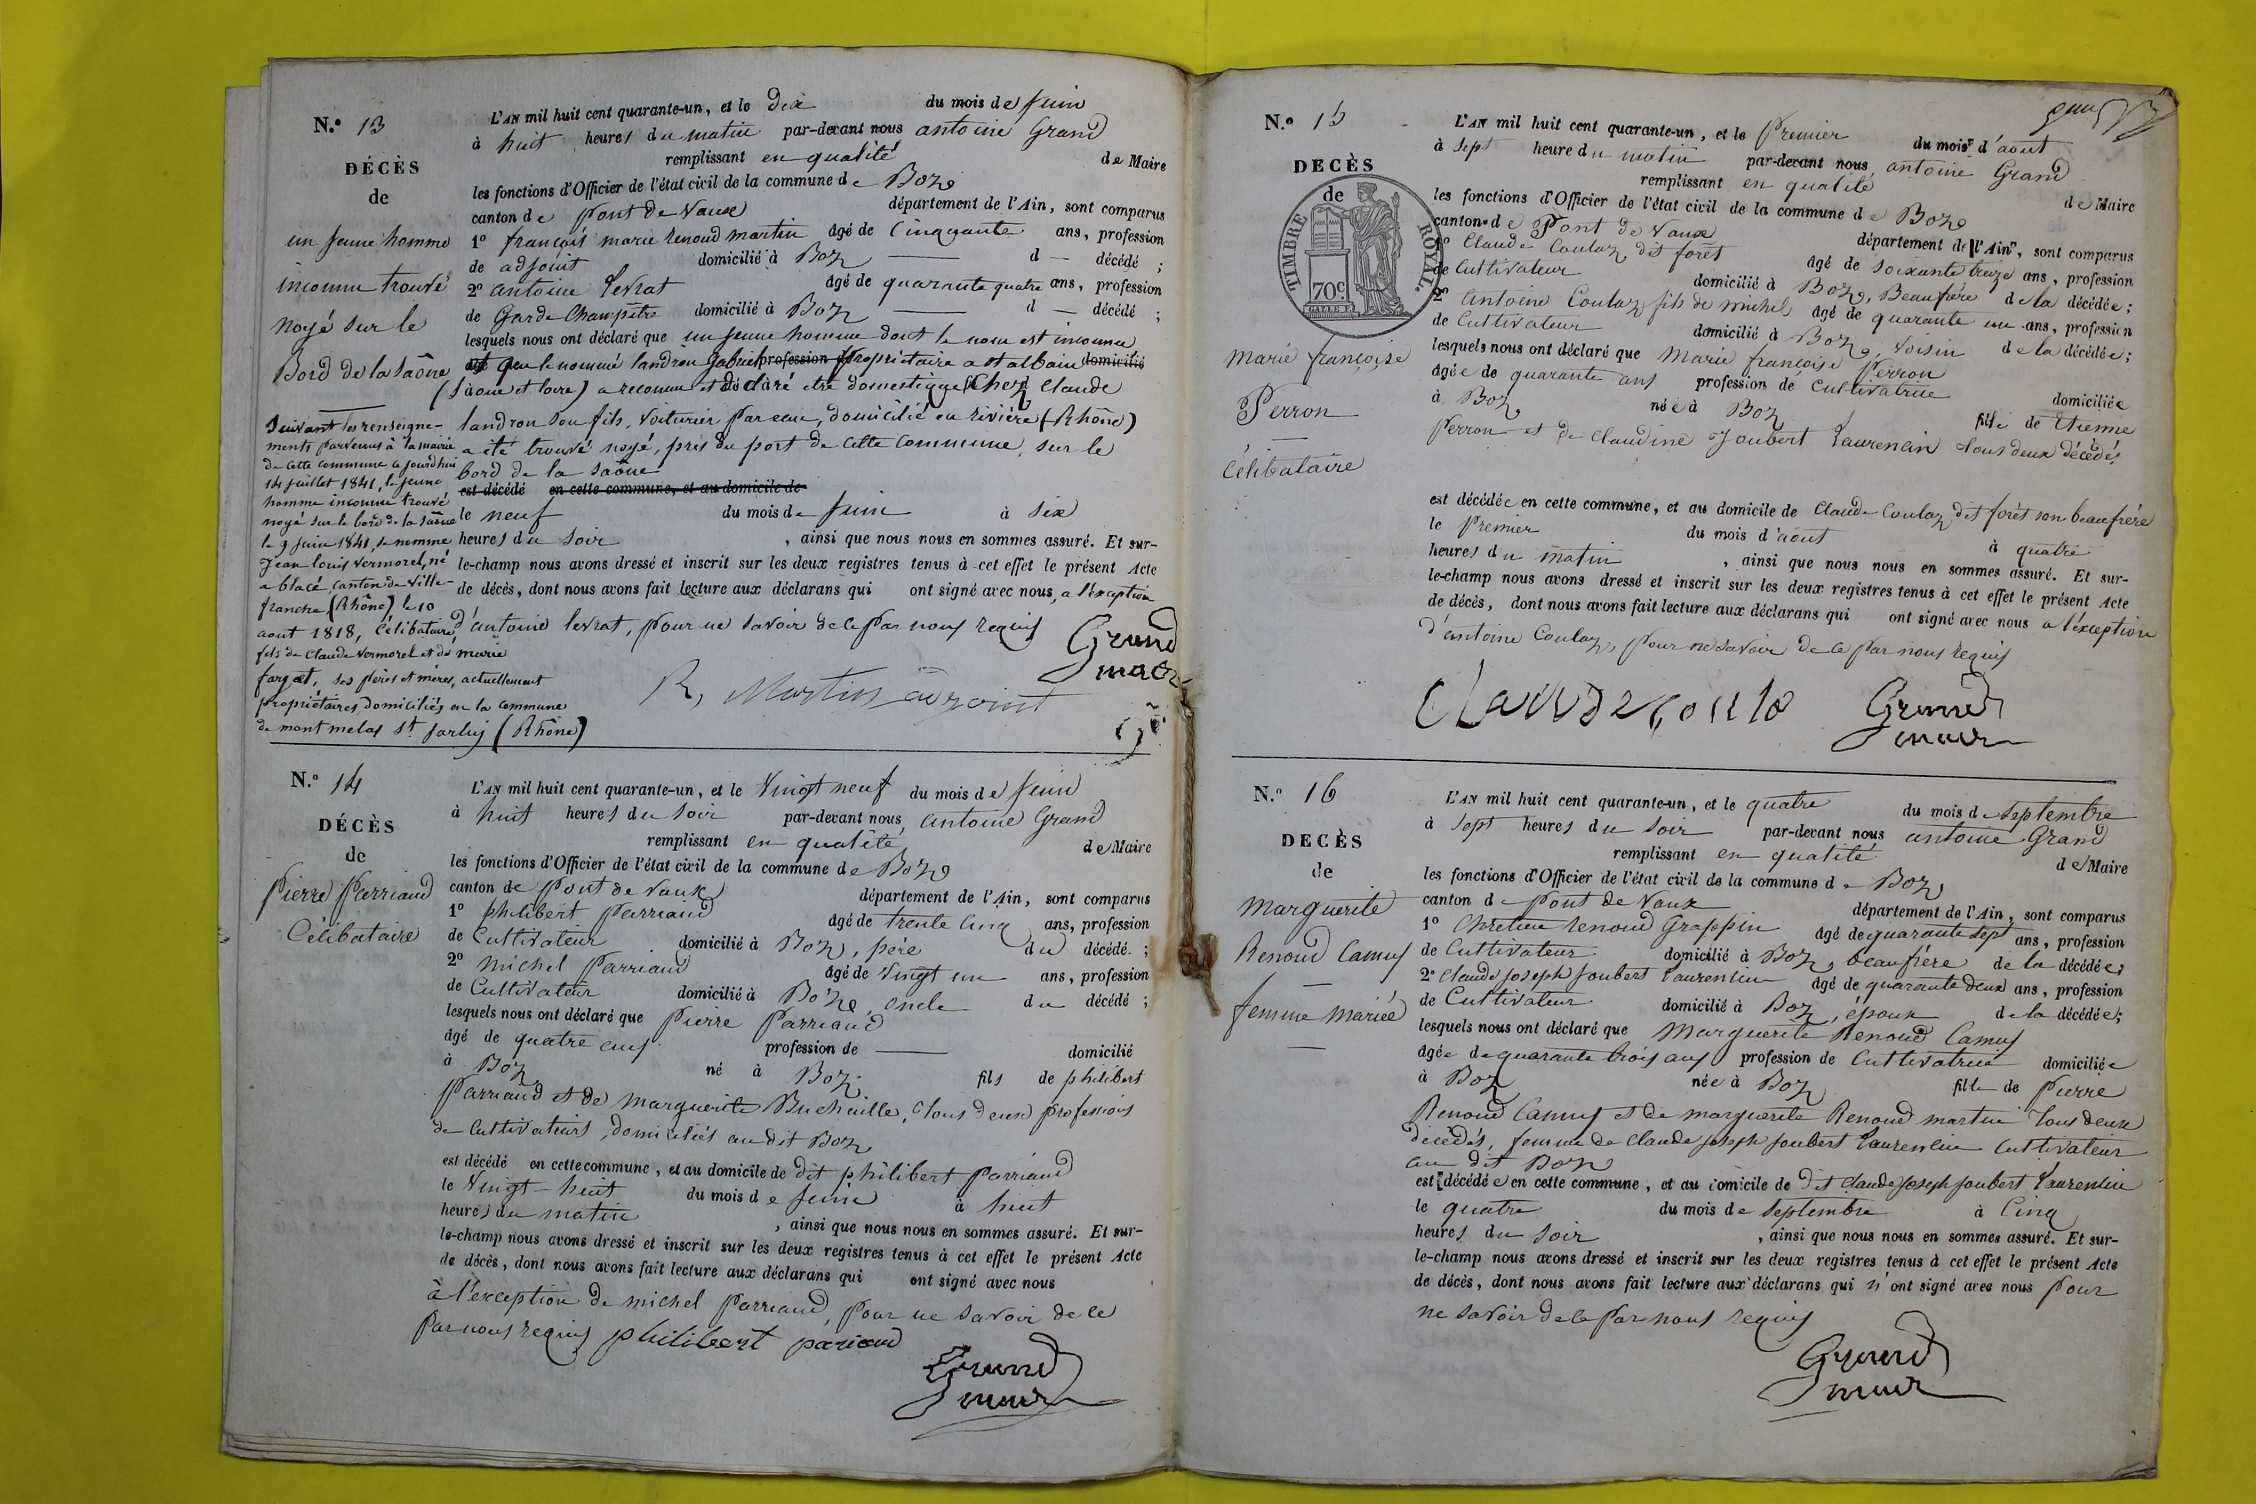 N.º 13
DÉCÈS
de
un jeune homme
inconnu trouvé
noyé sur le
Bord de la Saône
Suivant les renseigne-
ments parvenus à la mairie
de cette commune ce jourdhui
14 juillet 1841, le jeune
homme inconnu trouvé
noyé sur le bord de la Saône
le 9 juin 1841, se nomme
Jean louis Vermorel, né
a blacé, canton de Ville-
franche (Rhône) le 10
aout 1818, Célibataire,
fils de Claude Vermorel et de marie
farget, ses pères et mères, actuellement
propriétaires domiciliés en la commune
de mont melas St. Sorlin (Rhône)
L'AN mil huit cent quarante-un, et le dix du mois de Juin
à huit heures du matin par-devant nous antoine Grand
remplissant en qualité de Maire
les fonctions d'Officier de l'état civil de la commune de Boz
canton de Pont de Vaux département de l'Ain, sont comparus
1º françois marie Renoud martin âgé de Cinquante ans, profession
de adjoint domicilié à Boz d — décédé ;
2º antoine Levrat âgé de quarante quatre ans, profession
de Garde Champêtre domicilié à Boz d — décédé ;
lesquels nous ont déclaré que un jeune homme dont le nom est inconnu
que le nommé landron Gabriel profession propriétaire a St albain domicilié
(Saone et loire) a reconnu et déclaré etre domestique Chez Claude
landron son fils, Voiturier par eau, domicilié en rivière (Rhône)
a été trouvé noyé, près du port de cette commune, sur le
bord de la Saône
est décédé en cette commune, et au domicile de
le neuf du mois de Juin à six
heures du Soir , ainsi que nous nous en sommes assuré. Et sur-
le-champ nous avons dressé et inscrit sur les deux registres tenus à cet effet le présent Acte
de décès, dont nous avons fait lecture aux déclarans qui ont signé avec nous, a l'éxception
d'antoine levrat, pour ne savoir de ce par nous requis
Grand
maire
R, Martin adjoint
N.º 14
DÉCÈS
de
Pierre Parriaud
Célibataire
L'AN mil huit cent quarante-un, et le Vingt neuf du mois de Juin
à huit heures du soir par-devant nous antoine Grand
remplissant en qualité de Maire
les fonctions d'Officier de l'état civil de la commune de Boz
canton de Pont de Vaux département de l'Ain, sont comparus
1º philibert Parriaud âgé de trente cinq ans, profession
de Cultivateur domicilié à Boz, père du décédé ;
2º michel Parriaud âgé de Vingt un ans, profession
de Cultivateur domicilié à Boz, oncle du décédé ;
lesquels nous ont déclaré que Pierre Parriaud
âgé de quatre ans profession de — domicilié
à Boz né à Boz fils de philibert
Parriaud et de marguerite Buchaille, tous deux professions
de Cultivateurs, domiciliés au dit Boz
est décédé en cette commune, et au domicile de dit philibert Parriaud
le Vingt-huit du mois de Juin à huit
heures du matin , ainsi que nous nous en sommes assuré. Et sur-
le-champ nous avons dressé et inscrit sur les deux registres tenus à cet effet le présent Acte
de décès, dont nous avons fait lecture aux déclarans qui ont signé avec nous
à l'exception de michel Parriaud, pour ne savoir de ce
par nous requis philibert pariaud
Grand
maire
N.º 15
DECÈS
de
TIMBRE ROYAL.
70c.
marie françoise
Perron
Célibataire
L'AN mil huit cent quarante-un, et le Premier du mois d'aout
à sept heure du matin par-devant nous antoine Grand
remplissant en qualité de Maire
les fonctions d'Officier de l'état civil de la commune de Boz
canton de Pont de Vaux département de l'Ain, sont comparus
1º Claude Coulaz dit forêt âgé de soixante treize ans, profession
de Cultivateur domicilié à Boz, Beaufrère de la décédée ;
2º antoine Coulaz fils de michel âgé de quarante un ans, profession
de Cultivateur domicilié à Boz, Voisin de la décédée ;
lesquels nous ont déclaré que Marie françoise Perron
âgée de quarante ans profession de Cultivatrice domiciliée
à Boz née à Boz fille de Etienne
Perron et de Claudine Joubert Laurencin tous deux décédés
est décédée en cette commune, et au domicile de Claude Coulaz dit forêt son beaufrère
le Premier du mois d'aout à quatre
heures du matin , ainsi que nous nous en sommes assuré. Et sur-
le-champ nous avons dressé et inscrit sur les deux registres tenus à cet effet le présent Acte
de décès, dont nous avons fait lecture aux déclarans qui ont signé avec nous a l'éxception
d'antoine Coulaz, pour ne savoir de ce par nous requis
Grand
maire
N.º 16
DECÈS
de
Marguerite
Renoud Camus
femme mariée
L'AN mil huit cent quarante-un, et le quatre du mois de Septembre
à sept heures du soir par-devant nous antoine Grand
remplissant en qualité de Maire
les fonctions d'Officier de l'état civil de la commune de Boz
canton de Pont de Vaux département de l'Ain, sont comparus
1º Chretien Renoud Grappin âgé de quarante sept ans, profession
de Cultivateur domicilié à Boz, beaufrère de la décédée ;
2º Claude Joseph Joubert Laurencin âgé de quarante deux ans, profession
de Cultivateur domicilié à Boz, époux de la décédée ;
lesquels nous ont déclaré que Marguerite Renoud Camus
âgée de quarante trois ans profession de Cultivatrice domiciliée
à Boz née à Boz fille de Pierre
Renoud Camus et de marguerite Renoud martin tous deux
décédés, femme de Claude Joseph Joubert Laurencin Cultivateur
au dit Boz
est décédée en cette commune, et au domicile de dit Claude Joseph Joubert Laurencin
le quatre du mois de Septembre à Cinq
heures du Soir , ainsi que nous nous en sommes assuré. Et sur-
le-champ nous avons dressé et inscrit sur les deux registres tenus à cet effet le présent Acte
de décès, dont nous avons fait lecture aux déclarans qui n'ont signé avec nous pour
ne savoir de ce par nous requis
Grand
maire